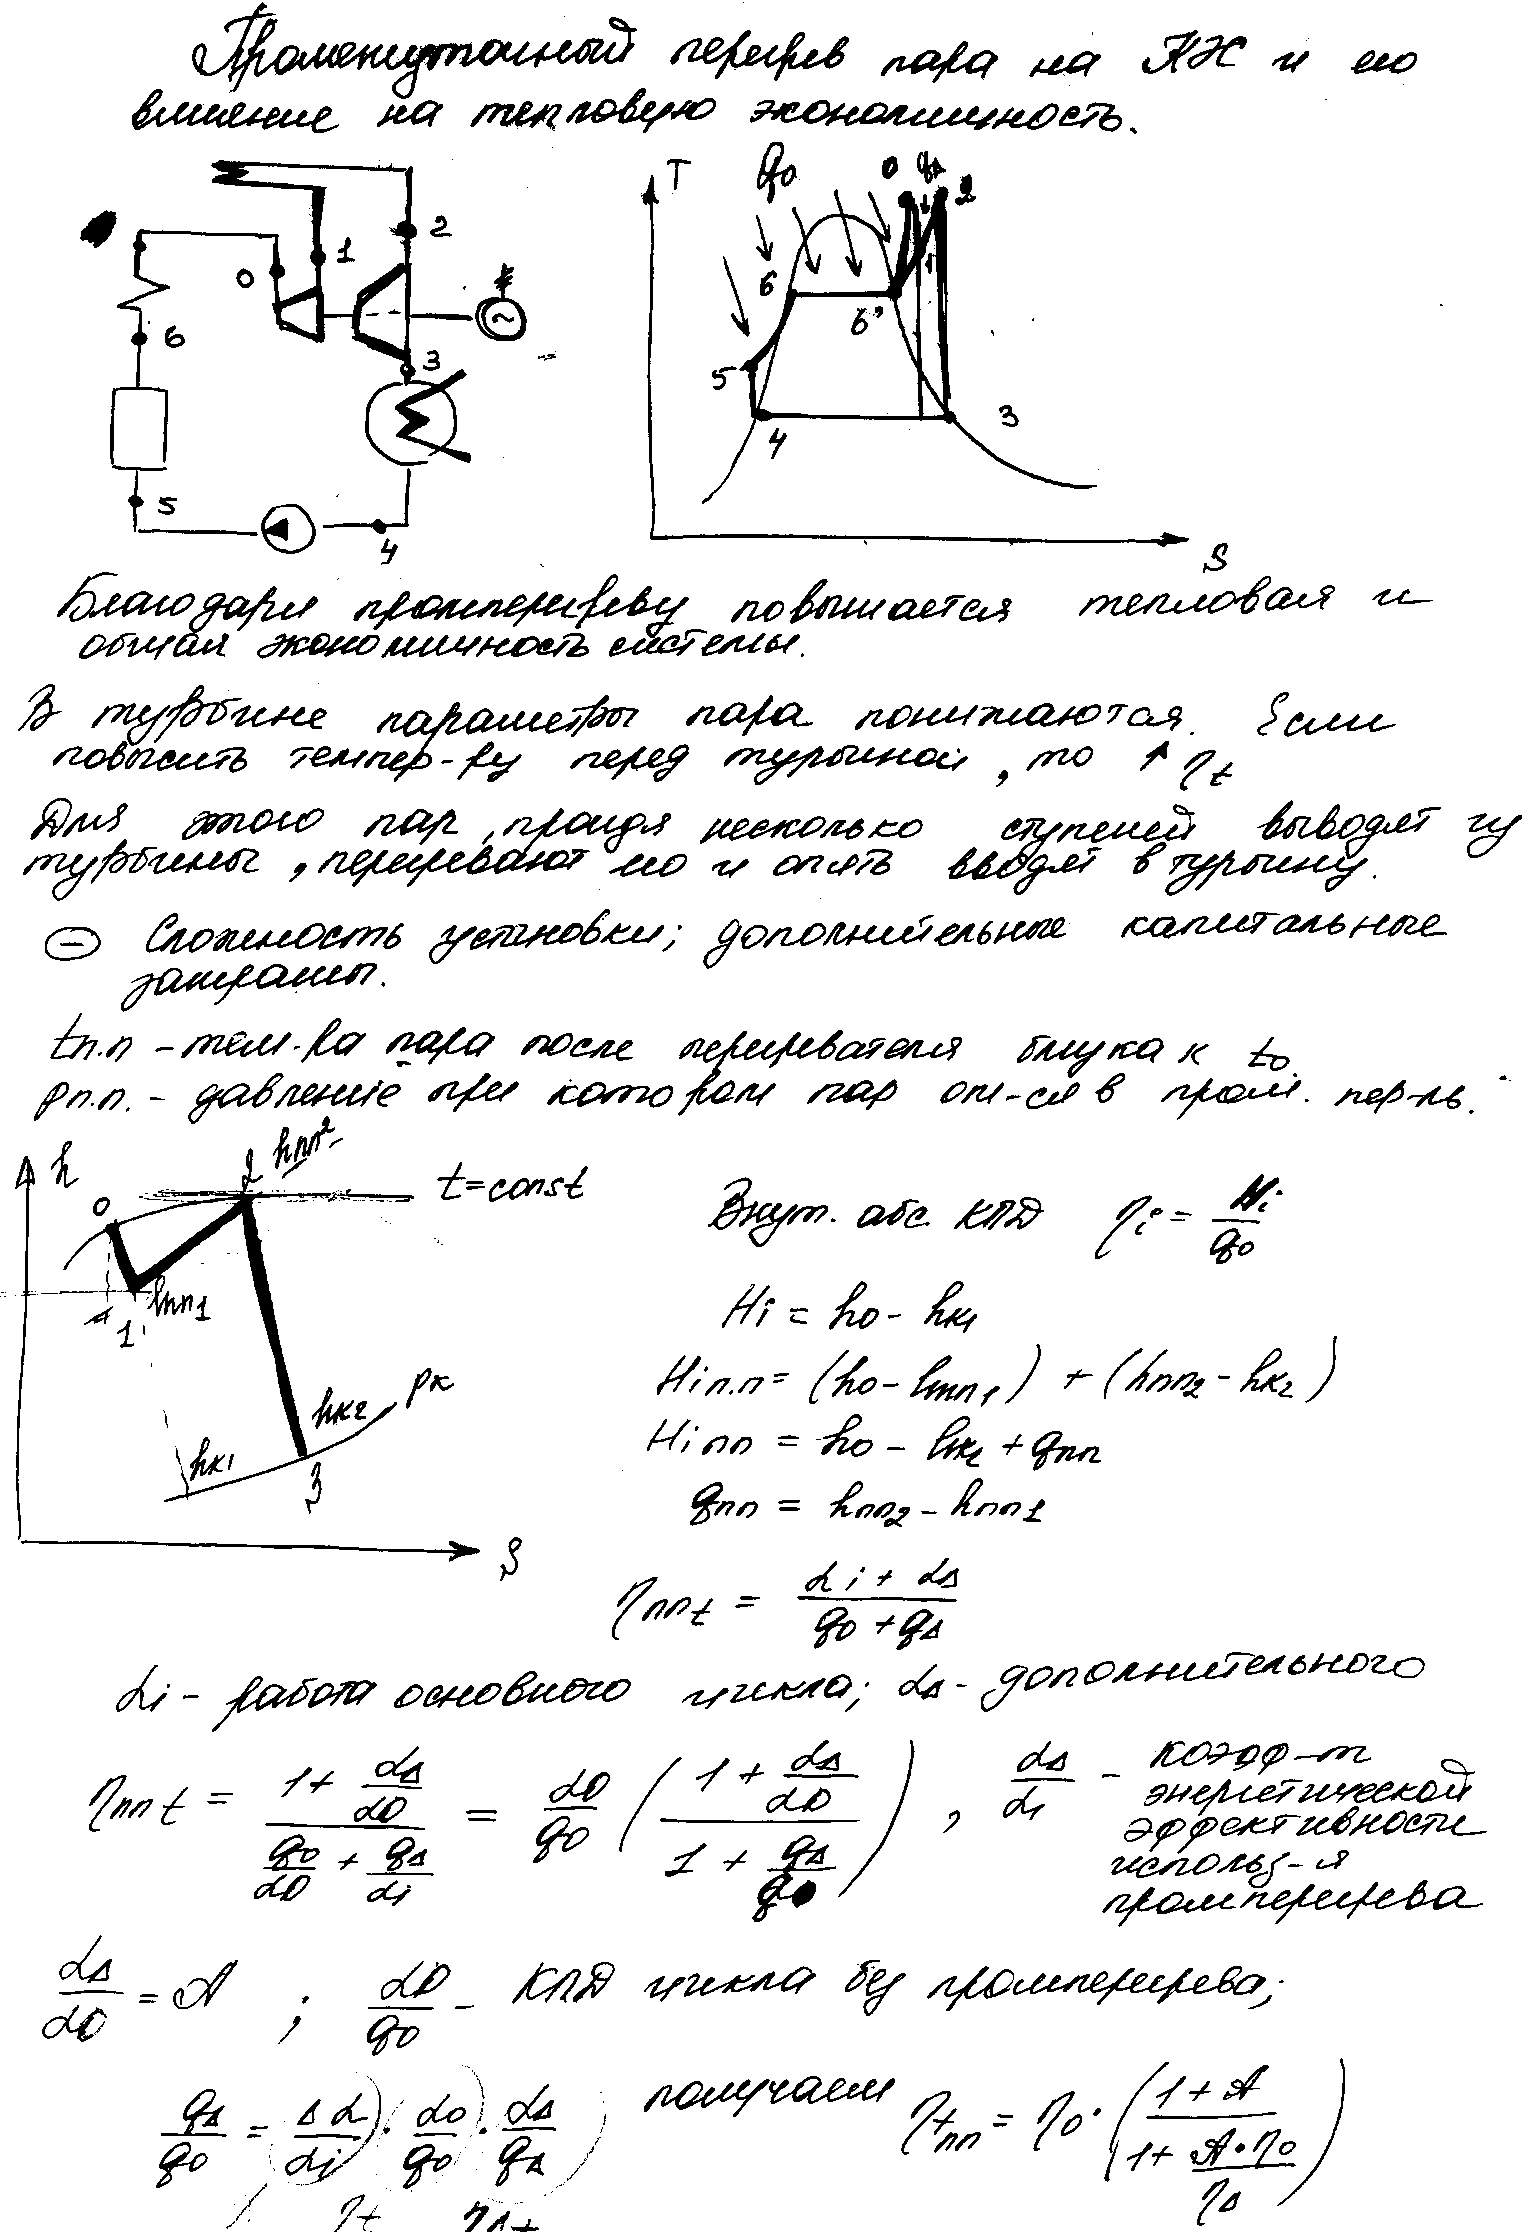 Промежуточный перегрев пара на КЭС и его
влияние на тепловую экономичность.
T q₀ 0 qΔ 2
1 2 0 6 3 5 4
6 6' 1 5 4 3 S
Благодаря промперегреву повышается тепловая и
общая экономичность системы.
В турбине параметры пара понижаются. Если
повысить темпер-ру перед турбиной, то ↑ ηt
Для этого пар, пройдя несколько ступеней выводят из
турбины, перегревают его и опять вводят в турбину.
⊖ Сложность установки; дополнительные капитальные
затраты.
tп.п – тем-ра пара после перегревателя близка к t₀.
Pп.п. – давление при котором пар от-ся в пром. пер-ль.
h 0 2 hпп2 t=const
1' hпп1
hк2 Pк
hк1 3
S
Внут. абс. КПД ηi = Hi/q₀
Hi = h₀ – hк1
Hiп.п = (h₀ – hпп1) + (hпп2 – hк2)
Hiпп = h₀ – hк2 + qпп
qпп = hпп2 – hпп1
ηппt = (Li + LΔ)/(q₀ + qΔ)
Li – работа основного цикла; LΔ – дополнительного
ηппt = (1 + LΔ/L0)/(q₀/L0 + qΔ/Li) = L0/q₀ ((1 + LΔ/L0)/(1 + qΔ/q₀)), LΔ/Li – коэфф-т
энергетической
эффективности
использ-я
промперегрева
LΔ/L0 = A ; L0/q₀ – КПД цикла без промперегрева;
qΔ/q₀ = (ΔL/Li)·(L₀/q₀)·(LΔ/qΔ) получаем ηtпп = η₀·((1 + A)/(1 + A·η₀/ηΔ))
ηt ηΔt